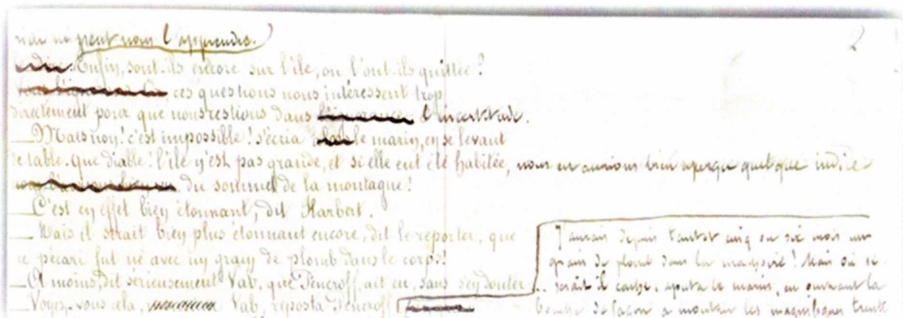 rien ne peut nous l'apprendre.
Enfin, sont-ils encore sur l'île, ou l'ont-ils quittée?
ces questions nous intéressent trop
directement pour que nous restions dans l'incertitude.
_ Mais non! c'est impossible! s'écria le marin, en se levant
de table. que diable! l'île n'est pas grande, et si elle eut été habitée, nous en aurions bien aperçu quelque indice
du sommet de la montagne!
_ C'est en effet bien étonnant, dit Harbert.
_ Mais il serait bien plus étonnant encore, dit le reporter, que
ce pécari fut né avec un grain de plomb dans le corps!
_ A moins, dit sérieusement Nab, que Pencroff, ait eu, sans s'en douter
_ Voyez-vous cela, Nab, riposta Pencroff
J'aurais depuis tantôt cinq ou six mois un
grain de plomb dans la machoire! Mais où se
serait-il caché, ajouta le marin, en ouvrant la
bouche de façon a montrer les magnifiques trente